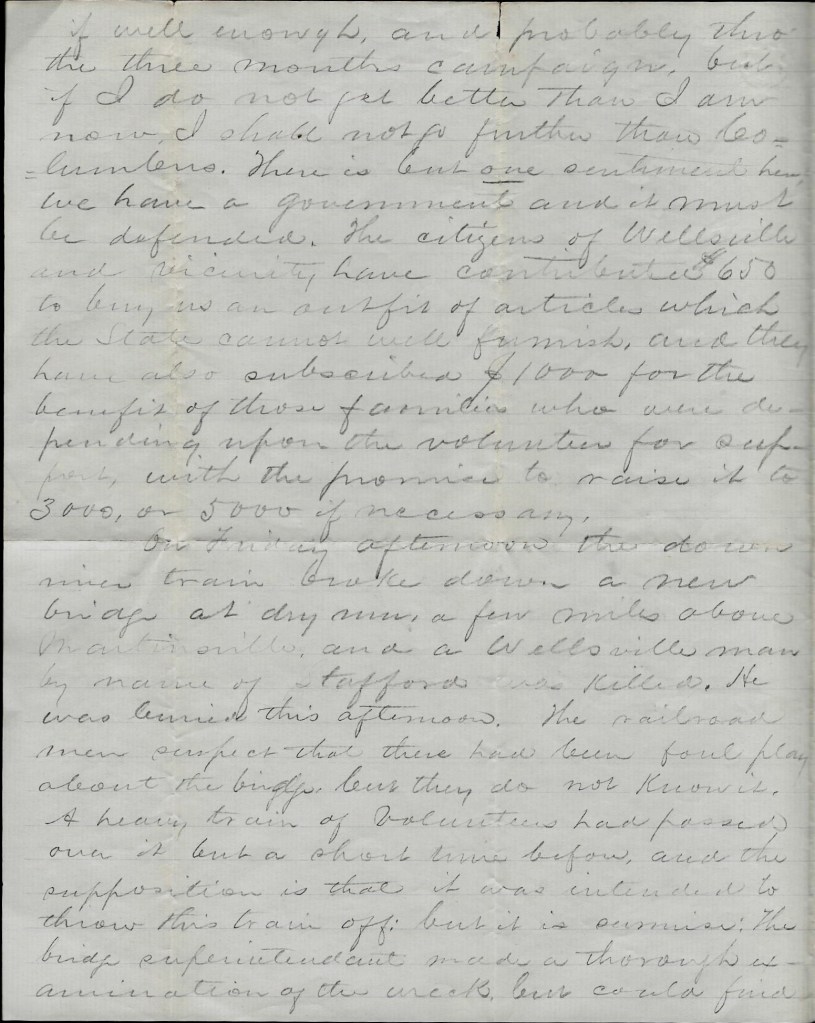 if well enough, and probably thro
the three months campaign, but
if I do not get better than I am
now, I shall not go further than Co=
=lumbus. There is but one sentiment here,
we have a government and it must
be defended. The citizens of Wellsville
and vicinity have contributed $650
to buy us an outfit of articles which
the State cannot well furnish, and they
have also subscribed $1000 for the
benefit of those families who were de-
pending upon the volunteer for sup-
port, with the promise to raise it to
3000, or 5000 if necessary.
On Friday afternoon the down
river train broke down a new
bridge at dry run, a few miles above
Martinsville, and a Wellsville man
by name of Stafford was killed. He
was buried this afternoon. The railroad
men suspect that there had been foul play
about the bridge, but they do not know it.
A heavy train of Volunteers had passed
over it but a short time before, and the
supposition is that it was intended to
throw this train off: but it is surmise: The
bridge superintendant made a thorough ex-
amination of the wreck, but could find